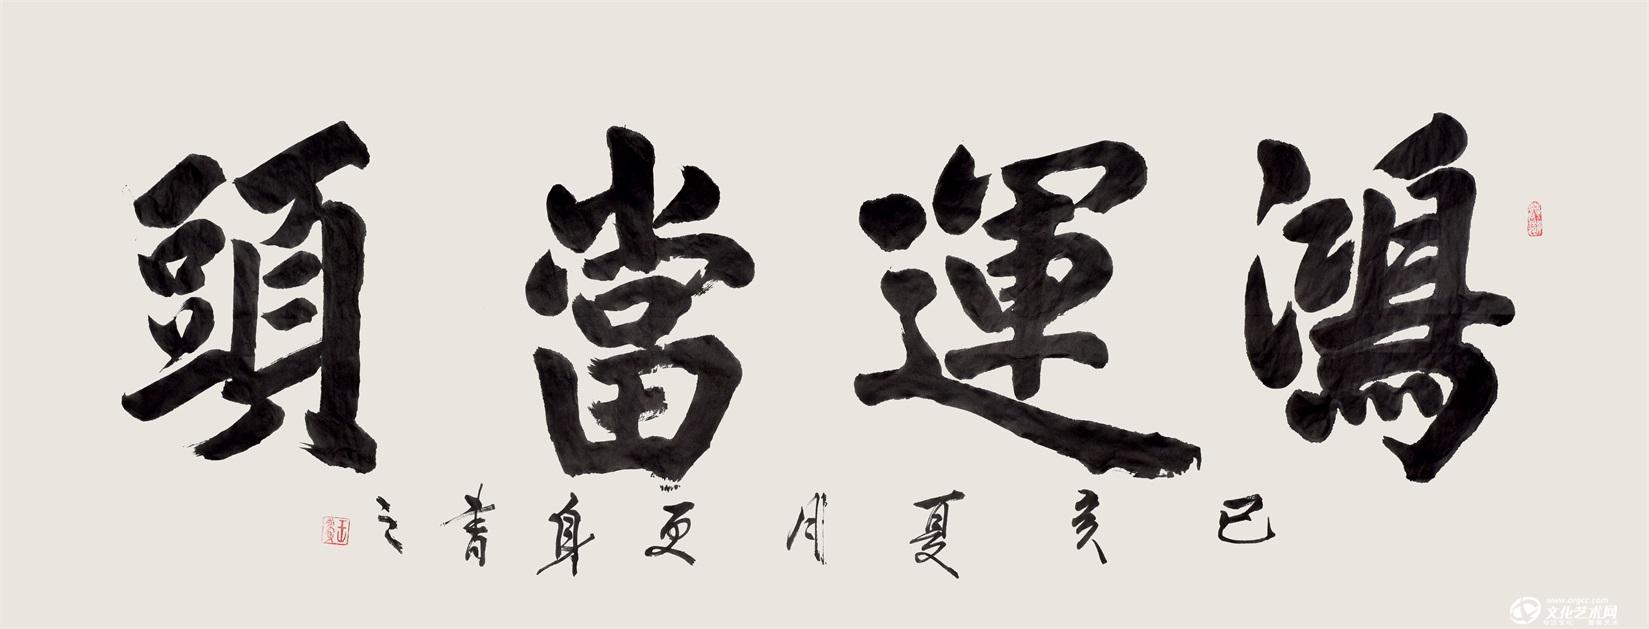 鴻運當頭
己亥夏月更身書之
www.orgcc.com
文化艺术网